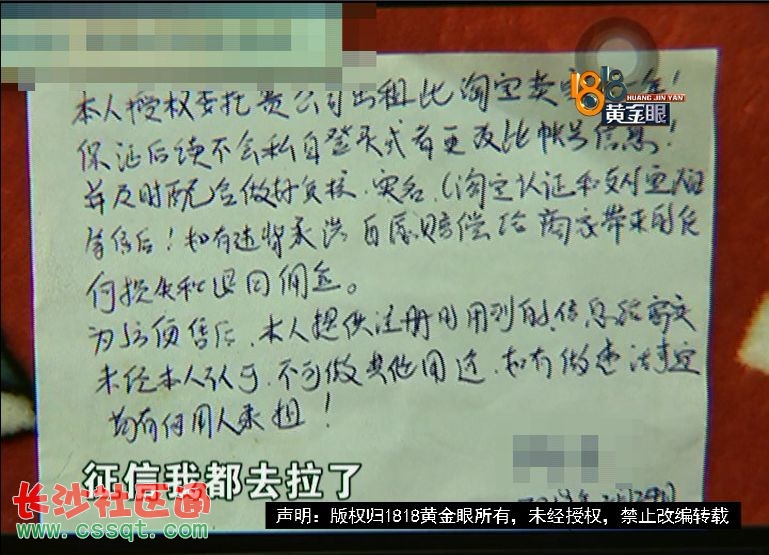 1818
HUANG JIN YAN
黄金眼
本人授权委托贵公司出租此淘宝卖
保证后续不会私自登录或者更改此帐号信息！
并及时配合做好负核、实名、(淘宝认证和支付宝
等售后！如有违背承诺自愿赔偿给商家带来的任
何损失和退回佣金。
为方便售后，本人提供注册时用到的信息给商家
未经本人认可，不可做其他用途，如有做违法事宜
均有使用人承担！
征信我都去拉了
长沙社区通
www.cssqt.com
声明：版权归1818黄金眼所有，未经授权，禁止改编转载